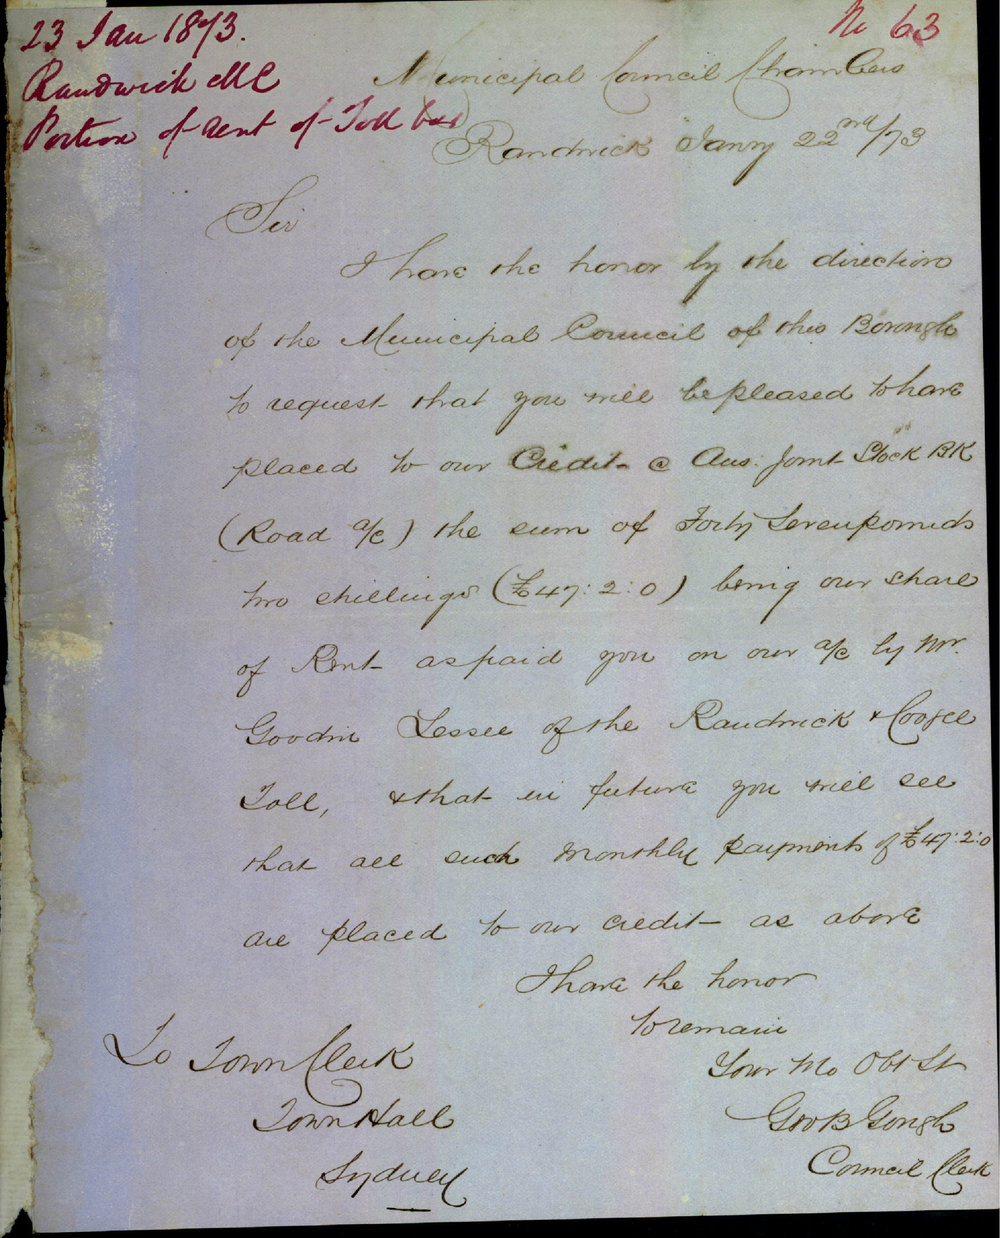 23 Jan 1873.
No 63
Randwick MC
Portion of rent of Toll bar
Municipal Council Chambers
Randwick Janry 22nd/73
Sir
I have the honor by the direction
of the Municipal Council of this Borough
to request that you will be pleased to have
placed to our Credit @ Aus: Joint Stock BK
(Road a/c) the sum of Forty Seven pounds
two shillings (£47:2:0) being our share
of Rent as paid you on our a/c by Mr.
Goodin Lessee of the Randwick & Coogee
Toll, & that in future you will see
that all such monthly payments of £47:2:0
are placed to our credit as above
I have the honor
to remain
Your Mo Obt St
Geo B Gough
Council Clerk
To Town Clerk
Town Hall
Sydney